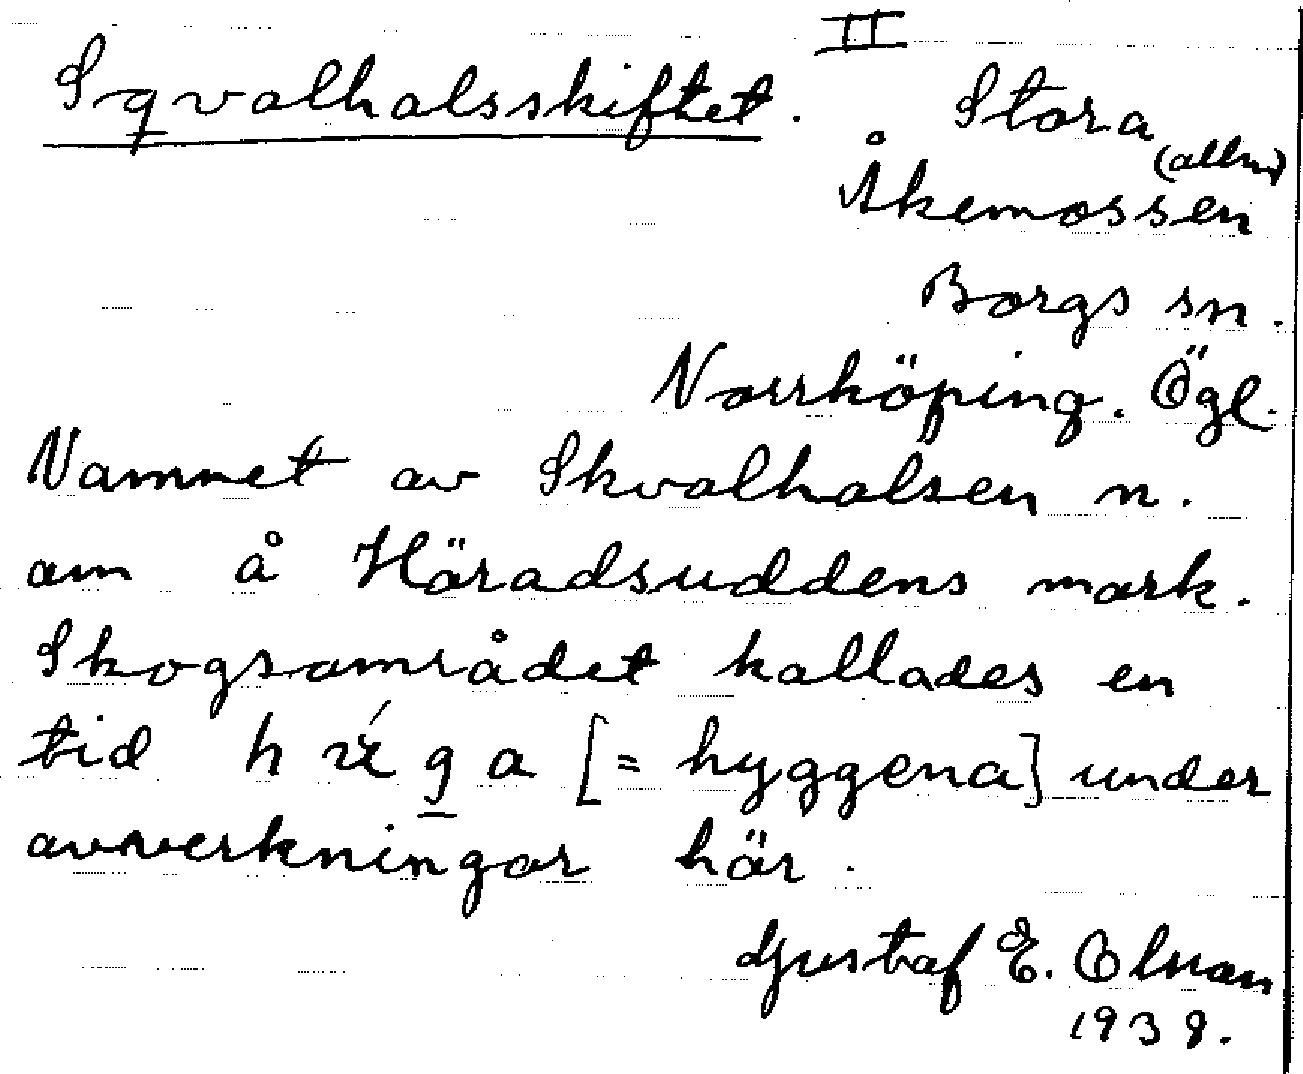 II
Sqvalhalsskiftet. Stora
(allm)
Åkemossen
Borgs sn.
Norrköping. Ögl.
Namnet av Skvalhalsen n.
om å Häradsuddens mark.
Skogsområdet kallades en
tid [= hyggena] under
avverkningar här.
Gustaf E.
1938.